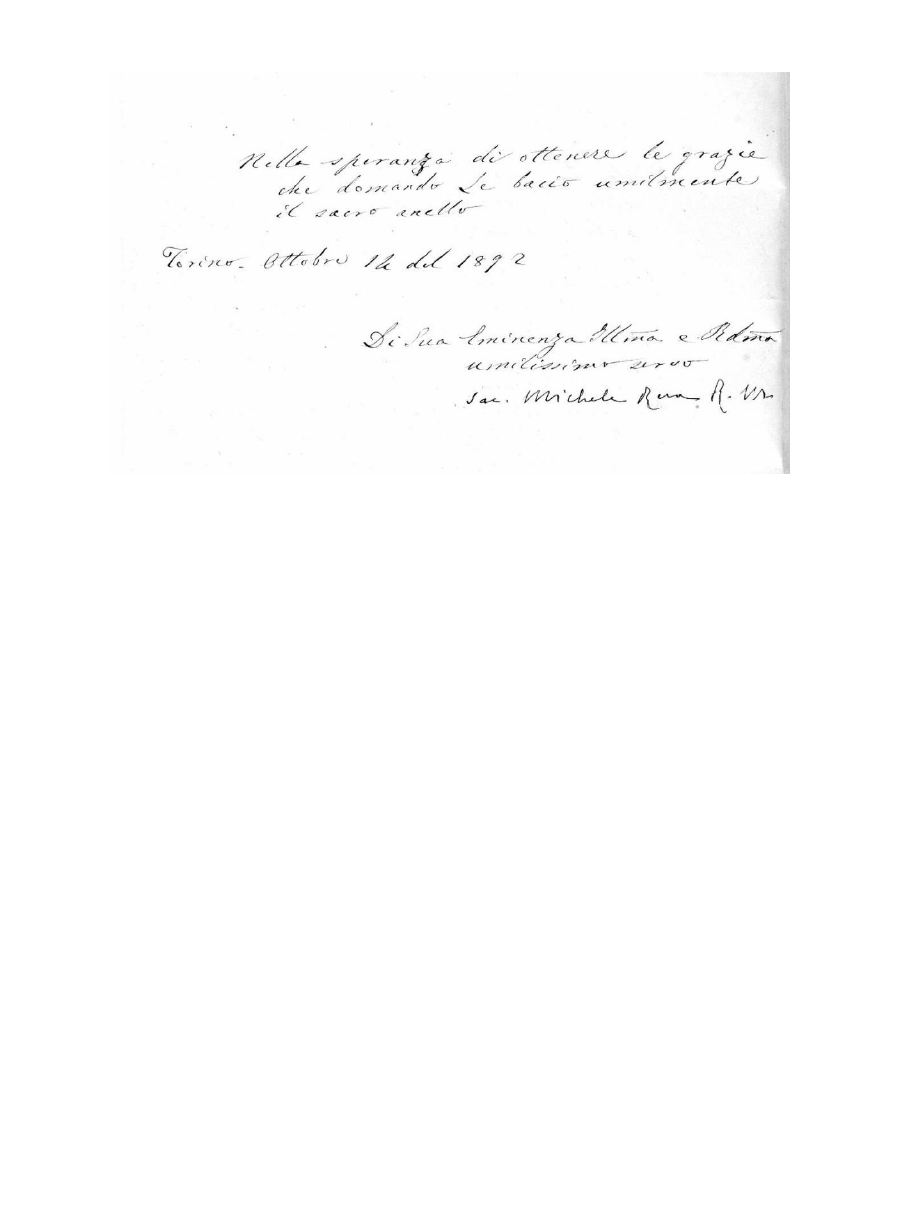 Nella speranza di ottenere le grazie
che domando Le bacio umilmente
il sacro anello
Torino. Ottobre 14 del 1892
Di Sua Eminenza Illma e Rdma
umilissimo servo
Sac. Michele Rua R. M.